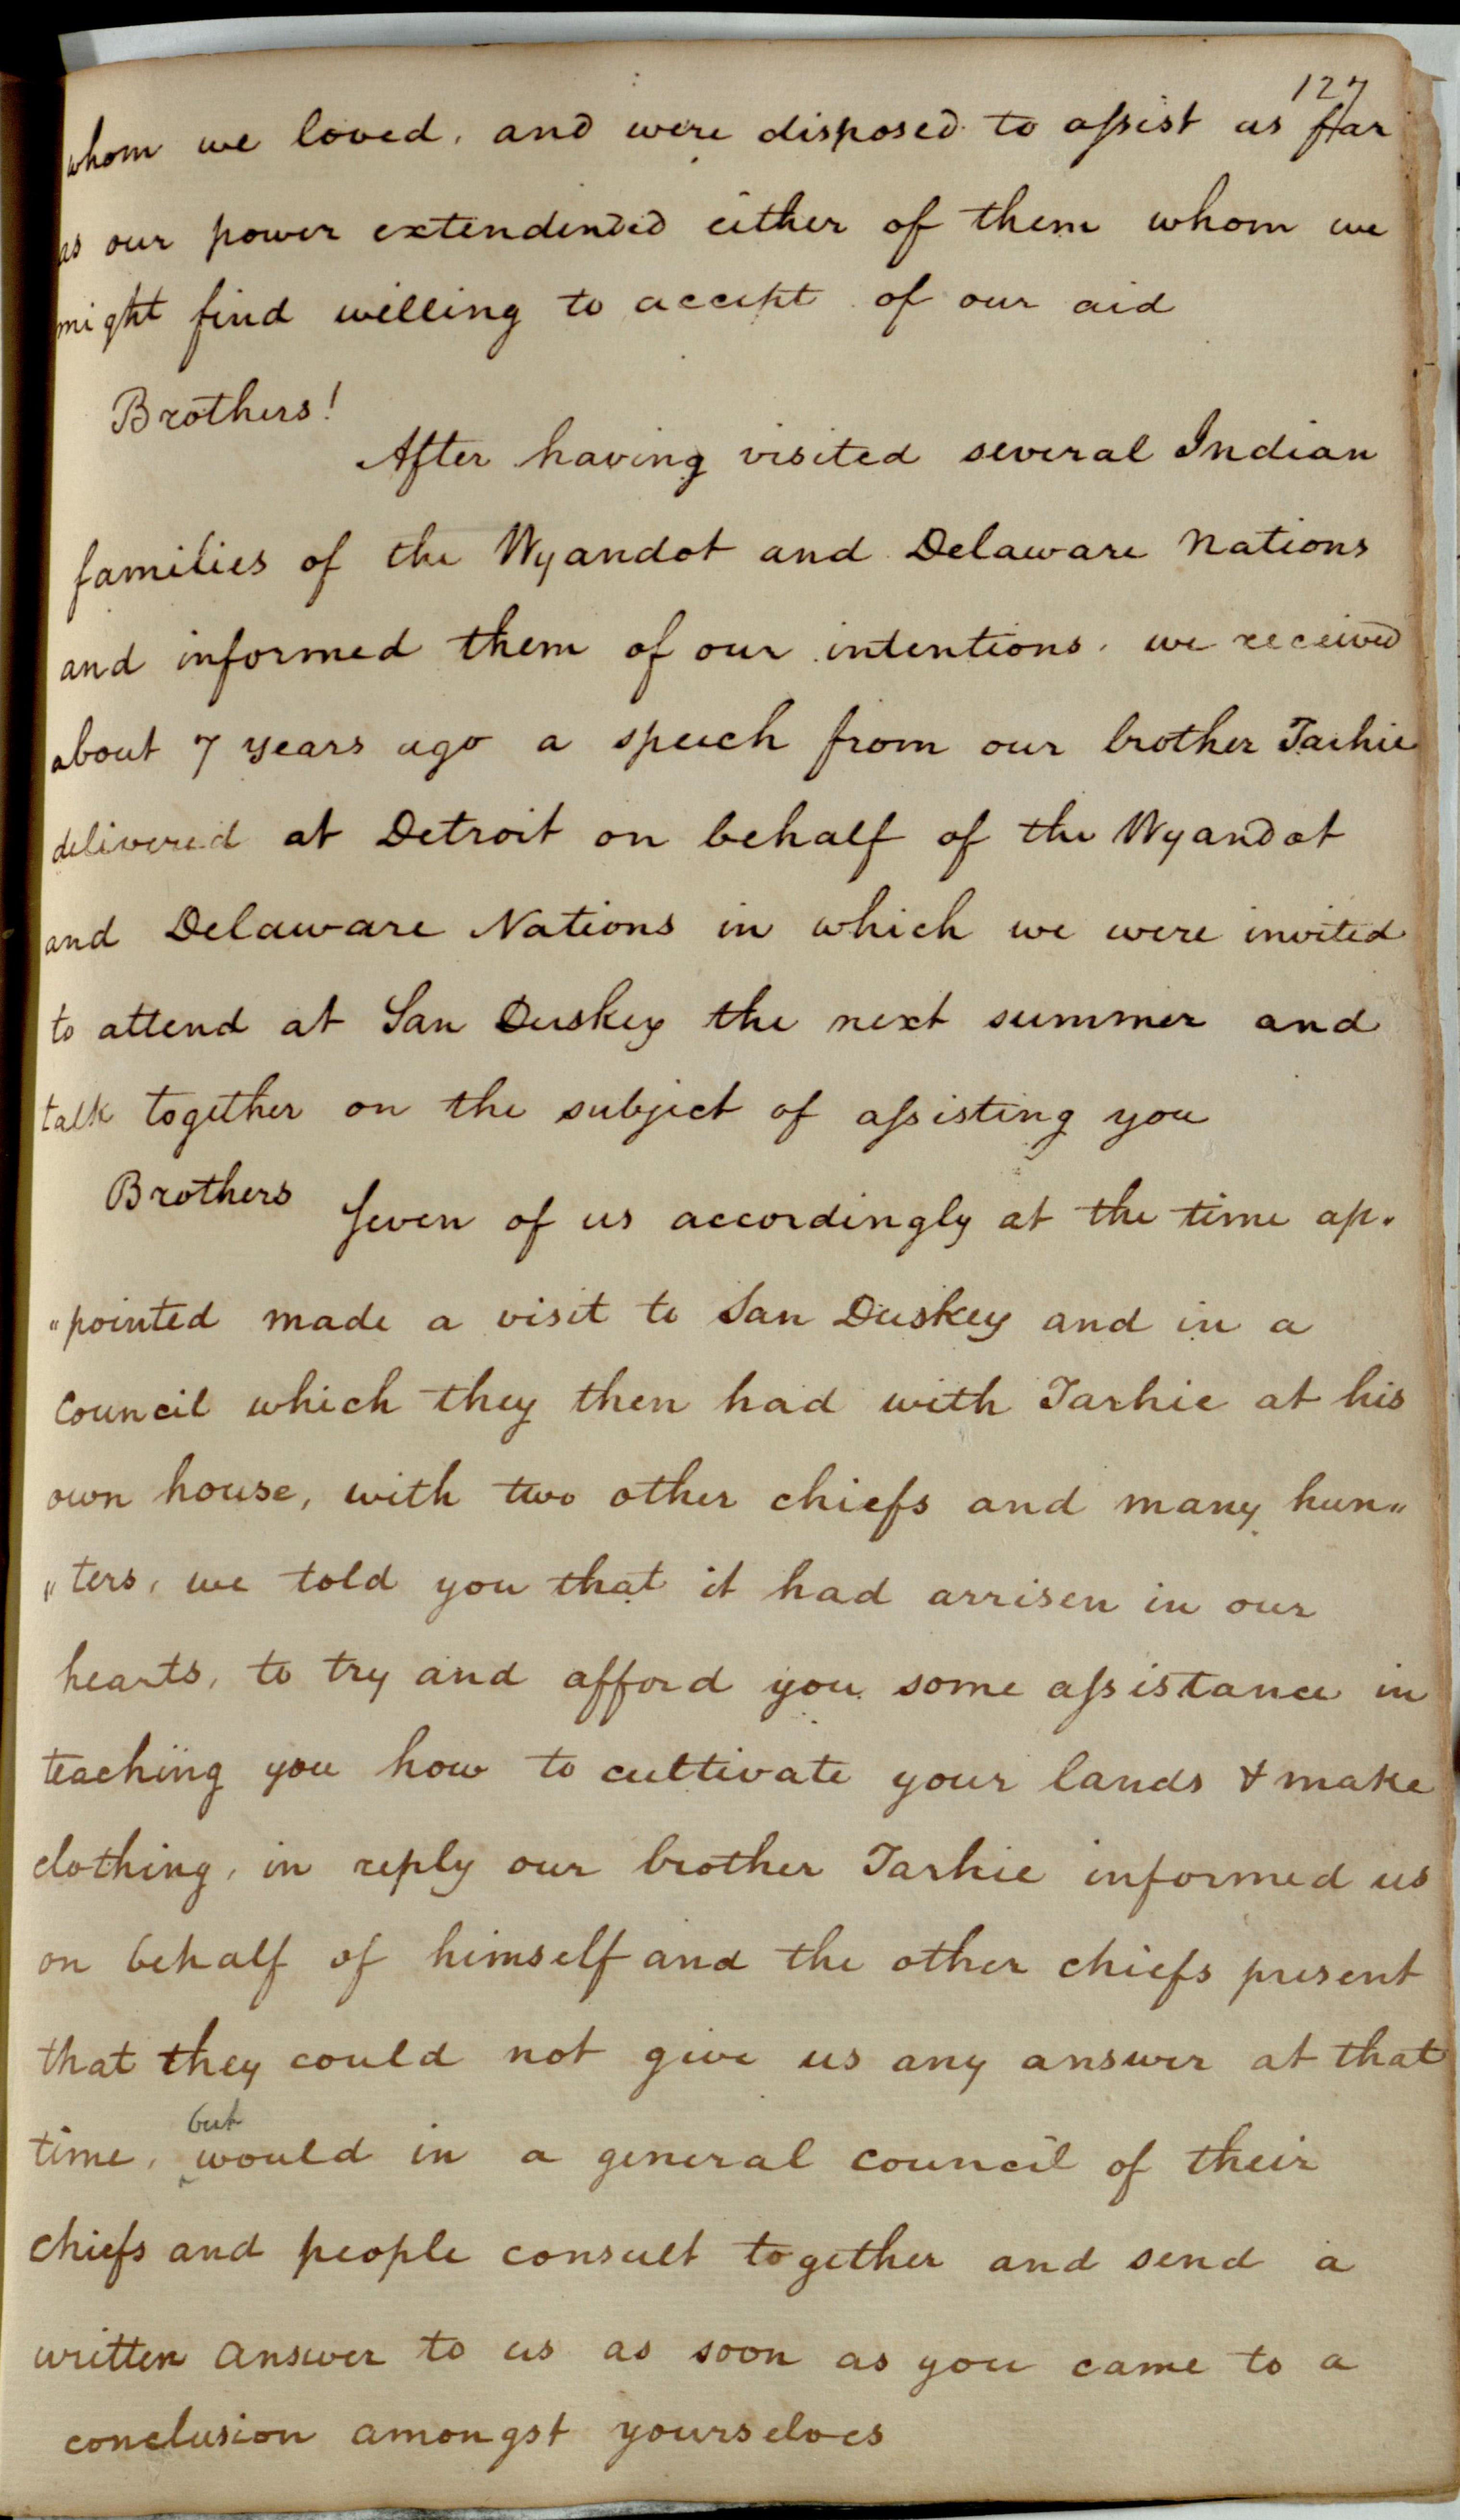 127
whom we loved, and were disposed to assist as far
as our power extendended either of them whom we
might find willing to accept of our aid
Brothers!
After having visited several Indian
families of the Wyandot and Delaware Nations
and informed them of our intentions, we received
about 7 years ago a speech from our brother Tarhie
delivered at Detroit on behalf of the Wyandot
and Delaware Nations in which we were invited
to attend at San Duskey the next summer and
talk together on the subject of assisting you
Brothers Seven of us accordingly at the time ap-
"pointed made a visit to San Duskey and in a
Council which they then had with Tarhie at his
own house, with two other chiefs and many hun"
"ters, we told you that it had arrisen in our
hearts, to try and afford you some assistance in
teaching you how to cultivate your lands & make
clothing, in reply our brother Tarhie informed us
on behalf of himself and the other chiefs present
that they could not give us any answer at that
but
time, would in a general council of their
chiefs and people consult together and send a
written answer to us as soon as you came to a
conclusion amongst yourselves